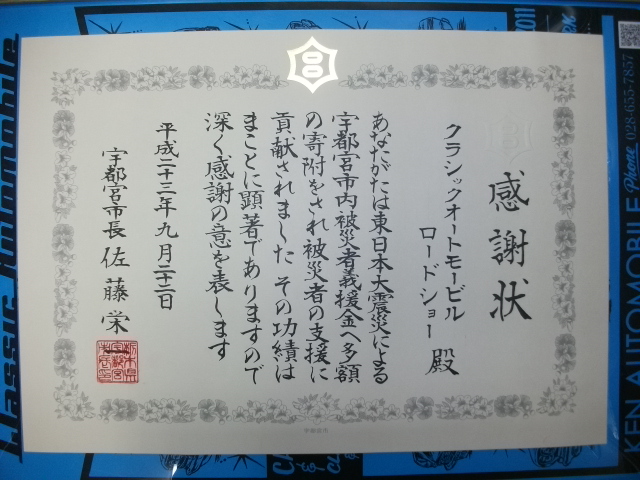 感謝状
クラシックオートモービル
ロードショー 殿
あなたがたは東日本大震災による
宇都宮市内被災者義援金へ多額
の寄附をされ被災者の支援に
貢献されました その功績は
まことに顕著でありますので
深く感謝の意を表します
平成二十三年九月二十二日
宇都宮市長 佐藤栄一
Classic Automobile
2011
Phone 028-655-7857
KEN AUTOMOBILE